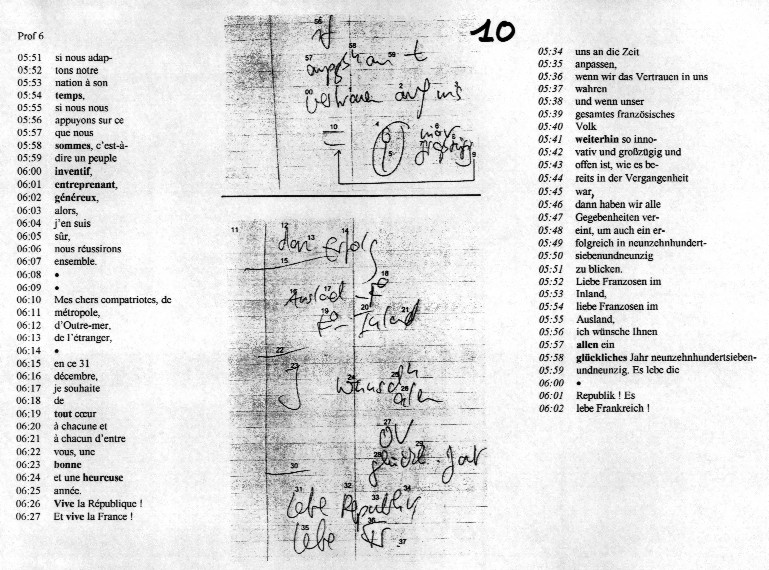 10
Prof 6
05:51 si nous adap-
05:52 tons notre
05:53 nation à son
05:54 temps,
05:55 si nous nous
05:56 appuyons sur ce
05:57 que nous
05:58 sommes, c'est-à-
05:59 dire un peuple
06:00 inventif,
06:01 entreprenant,
06:02 généreux,
06:03 alors,
06:04 j'en suis
06:05 sûr,
06:06 nous réussirons
06:07 ensemble.
06:08 •
06:09 •
06:10 Mes chers compatriotes, de
06:11 métropole,
06:12 d'Outre-mer,
06:13 de l'étranger,
06:14 •
06:15 en ce 31
06:16 décembre,
06:17 je souhaite
06:18 de
06:19 tout cœur
06:20 à chacune et
06:21 à chacun d'entre
06:22 vous, une
06:23 bonne
06:24 et une heureuse
06:25 année.
06:26 Vive la République !
06:27 Et vive la France !
56
58
57 59
00 2 3
vertrauen auf uns
4 6
10
5 8
9
11 12 13 14
dan Erfolg
15
16 17 18
Ausland - F
19 20 21
F - Inland
22
J
24 25
wünsch
26
allen
27
28 29
glückl. Jar
30
31 32 33 34
Lebe Republik
35 36
Lebe Fr. 37
05:34 uns an die Zeit
05:35 anpassen,
05:36 wenn wir das Vertrauen in uns
05:37 wahren
05:38 und wenn unser
05:39 gesamtes französisches
05:40 Volk
05:41 weiterhin so inno-
05:42 vativ und großzügig und
05:43 offen ist, wie es be-
05:44 reits in der Vergangenheit
05:45 war,
05:46 dann haben wir alle
05:47 Gegebenheiten ver-
05:48 eint, um auch ein er-
05:49 folgreich in neunzehnhundert-
05:50 siebenundneunzig
05:51 zu blicken.
05:52 Liebe Franzosen im
05:53 Inland,
05:54 liebe Franzosen im
05:55 Ausland,
05:56 ich wünsche Ihnen
05:57 allen ein
05:58 glückliches Jahr neunzehnhundertsieben-
05:59 undneunzig. Es lebe die
06:00 •
06:01 Republik ! Es
06:02 lebe Frankreich !